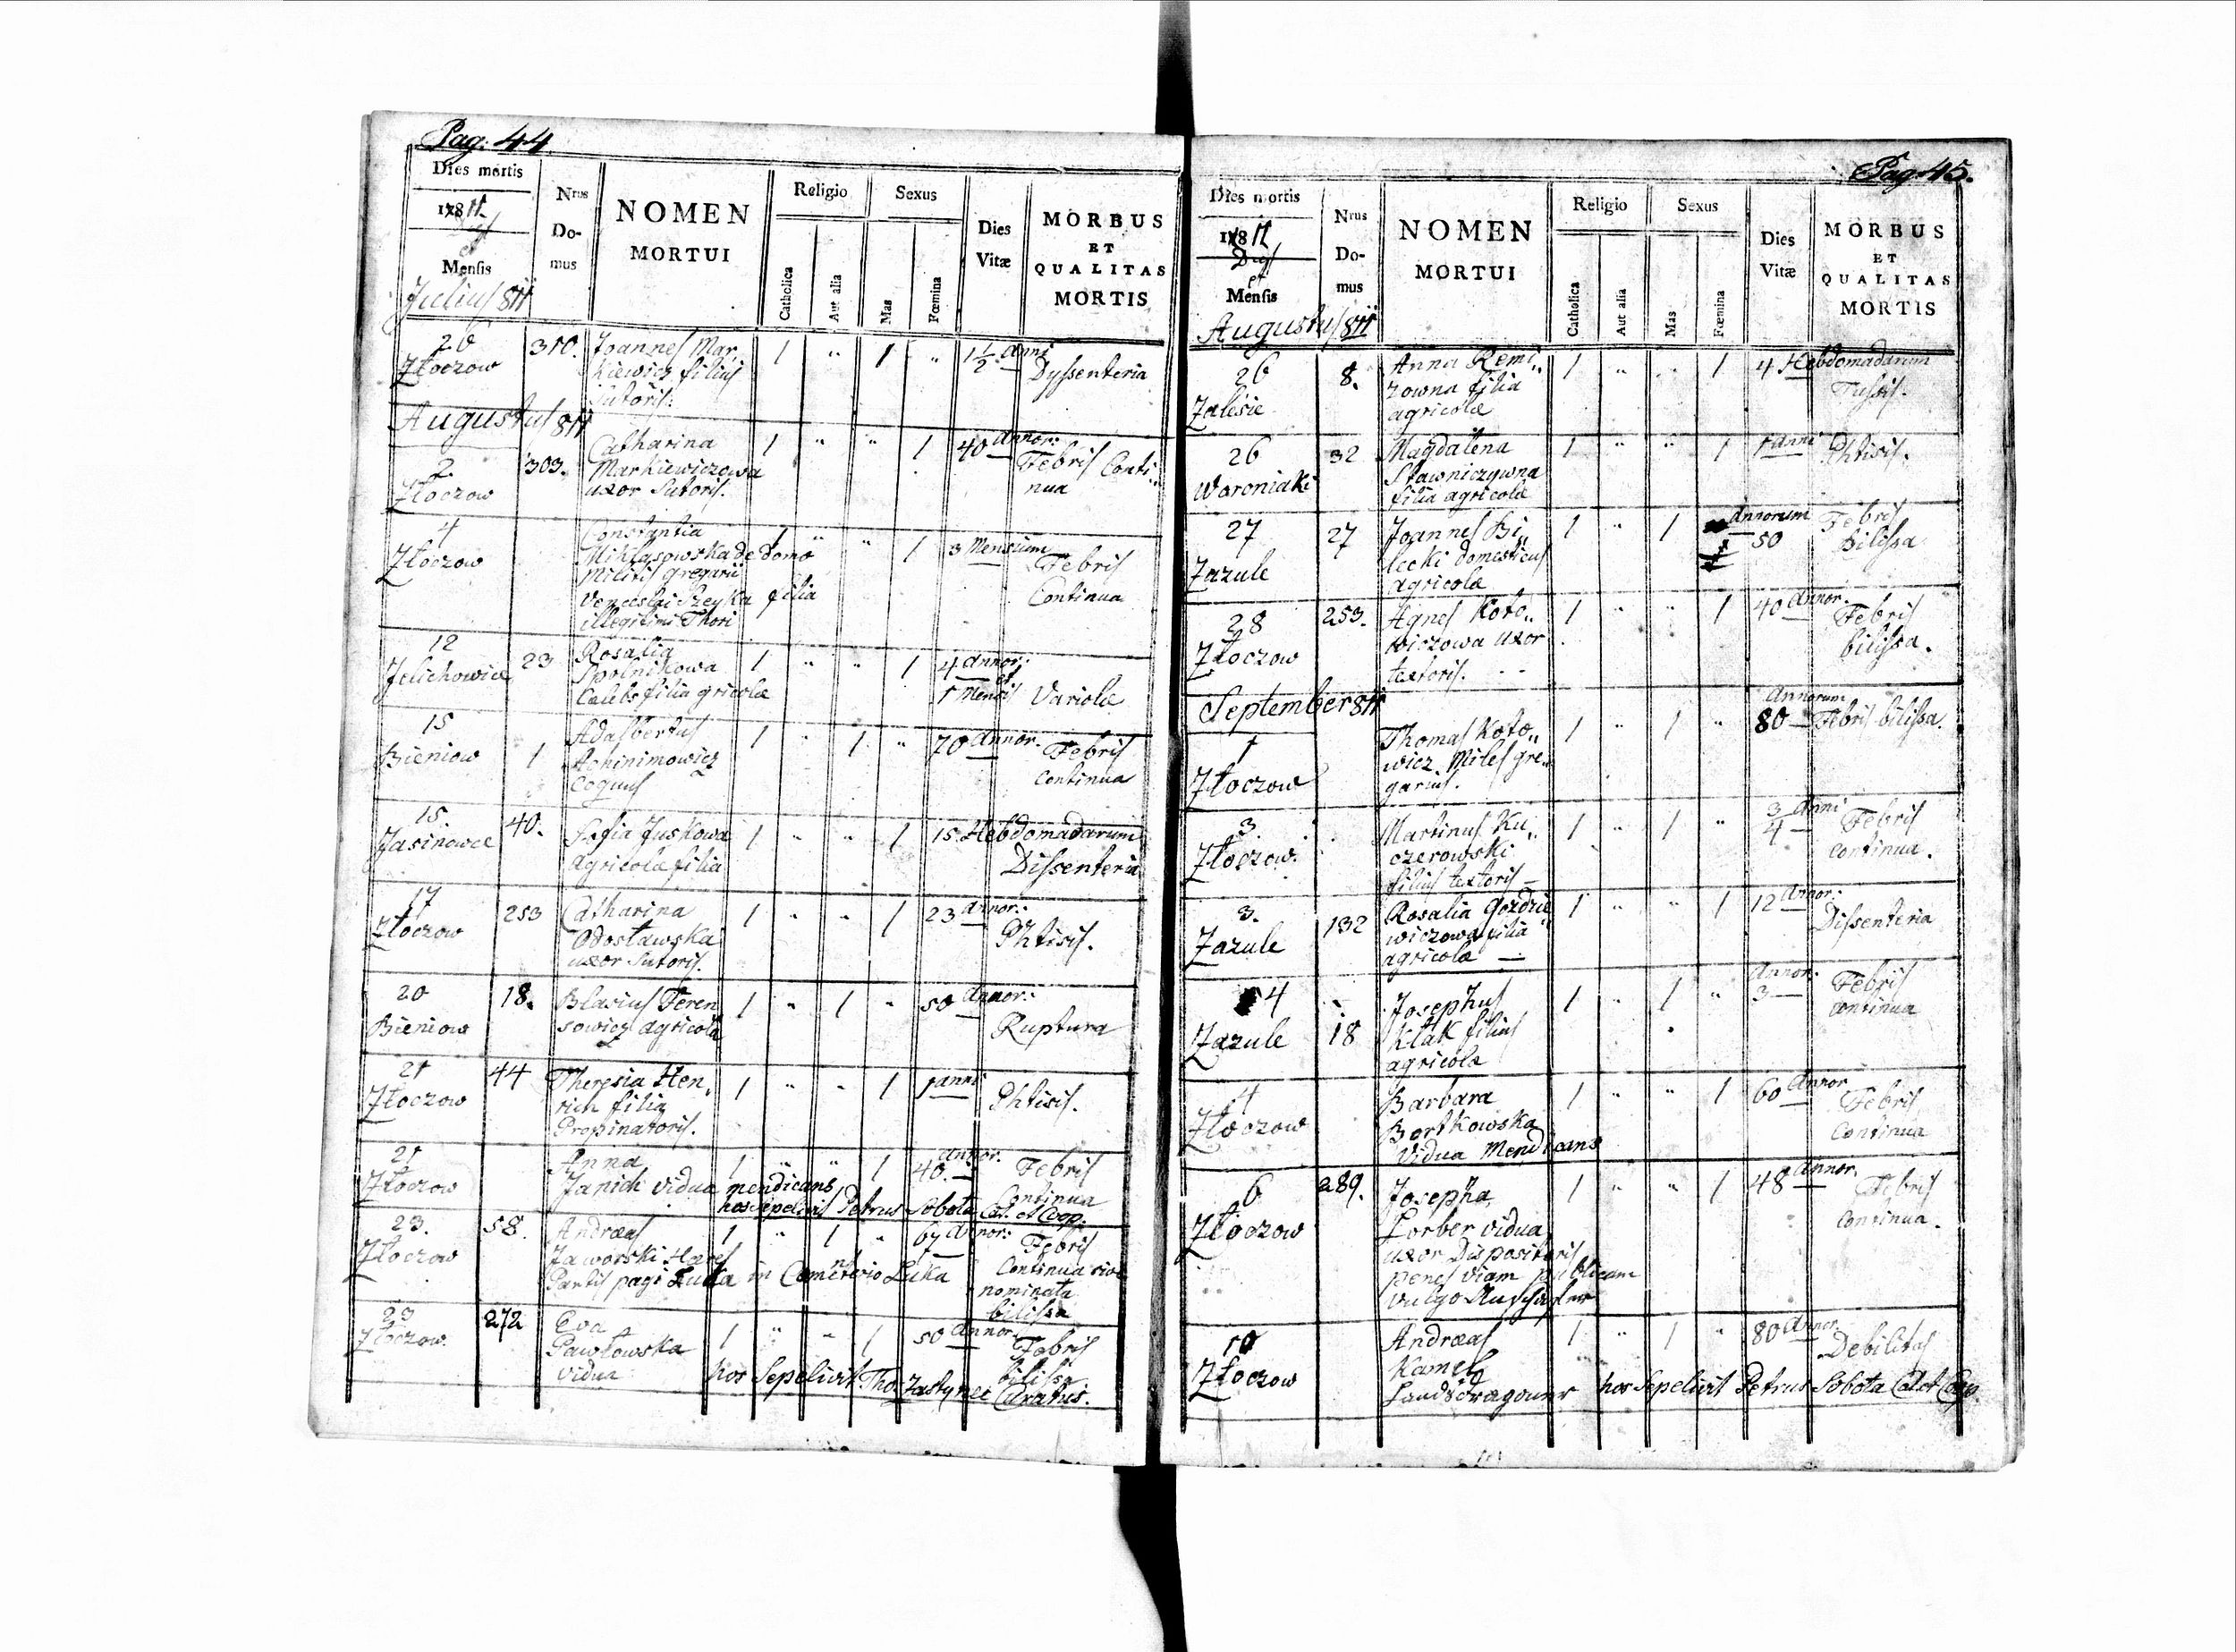 Pag: 44
Dies mortis
1811.
Mensis
Julius 811
Nrus
Do-
mus
NOMEN
MORTUI
Religio
Catholica
Aut alia
Sexus
Mas
Fœmina
Dies
Vitæ
MORBUS
ET
QUALITAS
MORTIS
26 310. Joannes Mar„ 1 „ 1 „ 1 1/2 Anni
Złoczow kiewicz filius Dyssenteria
Sutoris.
Augustus 811
2. 303. Catharina 1 „ „ 1 40 Annor:
Złoczow Markiewiczowa Febris Conti„
uxor Sutoris. nua
4 Constantia 1 „ „ 1 3 Mensium
Złoczow Miklasowska de domo Febris
Militis gregarii Continua
Venceslai Szeyka filia
illegitimi Thori
12 23 Rosalia 1 „ „ 1 4 Annor: et
Jelichowice Spolnikowa 1 Mensis Variola
filia gricolæ
15 Adalbertus 1 „ 1 „ 70 Annor. Febris
Bieniow 1 Achinimowicz Continua
Coquus
15. 40. Sofia Juskowa 1 „ „ 1 15. Hebdomadarum
Jasinowce Agricolæ filia Dissenteria
17 253 Catharina 1 „ „ 1 23 Annor:
Złoczow Odosławska Phtisis.
uxor Sutoris.
20 18. Blasius Feren 1 „ 1 „ 50 Annor:
Bieniow sowicz Agricola Ruptura
21 44 Theresia Hen„ 1 „ „ 1 1 anni
Złoczow rich filia Phtisis.
Propinatoris.
21 Anna 1 „ „ 1 40. Annor. Febris
Złoczow Janich vidua mendicans Continua
hos Sepelivit Petrus Sobota Cat. et Coop.
23. 58. Andreas 1 „ 1 „ 67 Annor: Febris
Złoczow Jaworski Hæres Continua sive
Partis pagi Łuka in Cometerio Łuka nominata
bilissa
23 272 Eva 1 „ „ 1 50 Annor. Febris
Złoczow. Pawłowska bilissa
Vidua hos Sepelivit Tho: Zastyrzei Curatus.
Pag 45.
Dies mortis
1811
Mensis
Augustus 811
Nrus
Do-
mus
NOMEN
MORTUI
Religio
Catholica
Aut alia
Sexus
Mas
Fœmina
Dies
Vitæ
MORBUS
ET
QUALITAS
MORTIS
26 8. Anna Remi„ 1 „ „ 1 4 Hebdomadarum
Zalesie zowna filia Tussis.
agricolæ
26 32 Magdalena 1 „ „ 1 1 Anni Phtisis.
Woroniaki Sławniczywna
filia agricolæ
27 27 Joannes Bi„ 1 „ 1 Annorum 50 Febris
Zazule lecki domesticus bilissa
agricolæ
28 253. Agnes Koto„ 1 „ „ 1 40 Annor. Febris
Złoczow wiczowa uxor bilissa.
textoris.
September 811
1 Thomas Koto„ 1 „ 1 „ 80 Annorum Febris bilissa.
Złoczow wicz Miles gre„
garius.
3. Martinus Ku„ 1 „ 1 „ 3/4 Anni Febris
Złoczow. czerowski Continua.
filius textoris
3. 132 Rosalia Gozdzie„ 1 „ „ 1 12 Annor:
Zazule wiczowa filia Dissenteria
agricolæ
4 18 Josephus 1 „ 1 „ 3 Annor: Febris
Zazule Kłak filius continua
agricolæ
4 Barbara 1 „ „ 1 60 Annor Febris
Złoczow Bortkowska Continua
Vidua Mendicans
6 289. Josepha 1 „ „ 1 48 Annor. Febris
Złoczow Lorber vidua Continua.
uxor Dispositoris
penes viam publicam
vulgo
10 Andreas 1 „ 1 „ 80 Annor. Debilitas
Złoczow Kamel
Landsdragouner hos Sepelivit Petrus Sobota Cat et Coop.